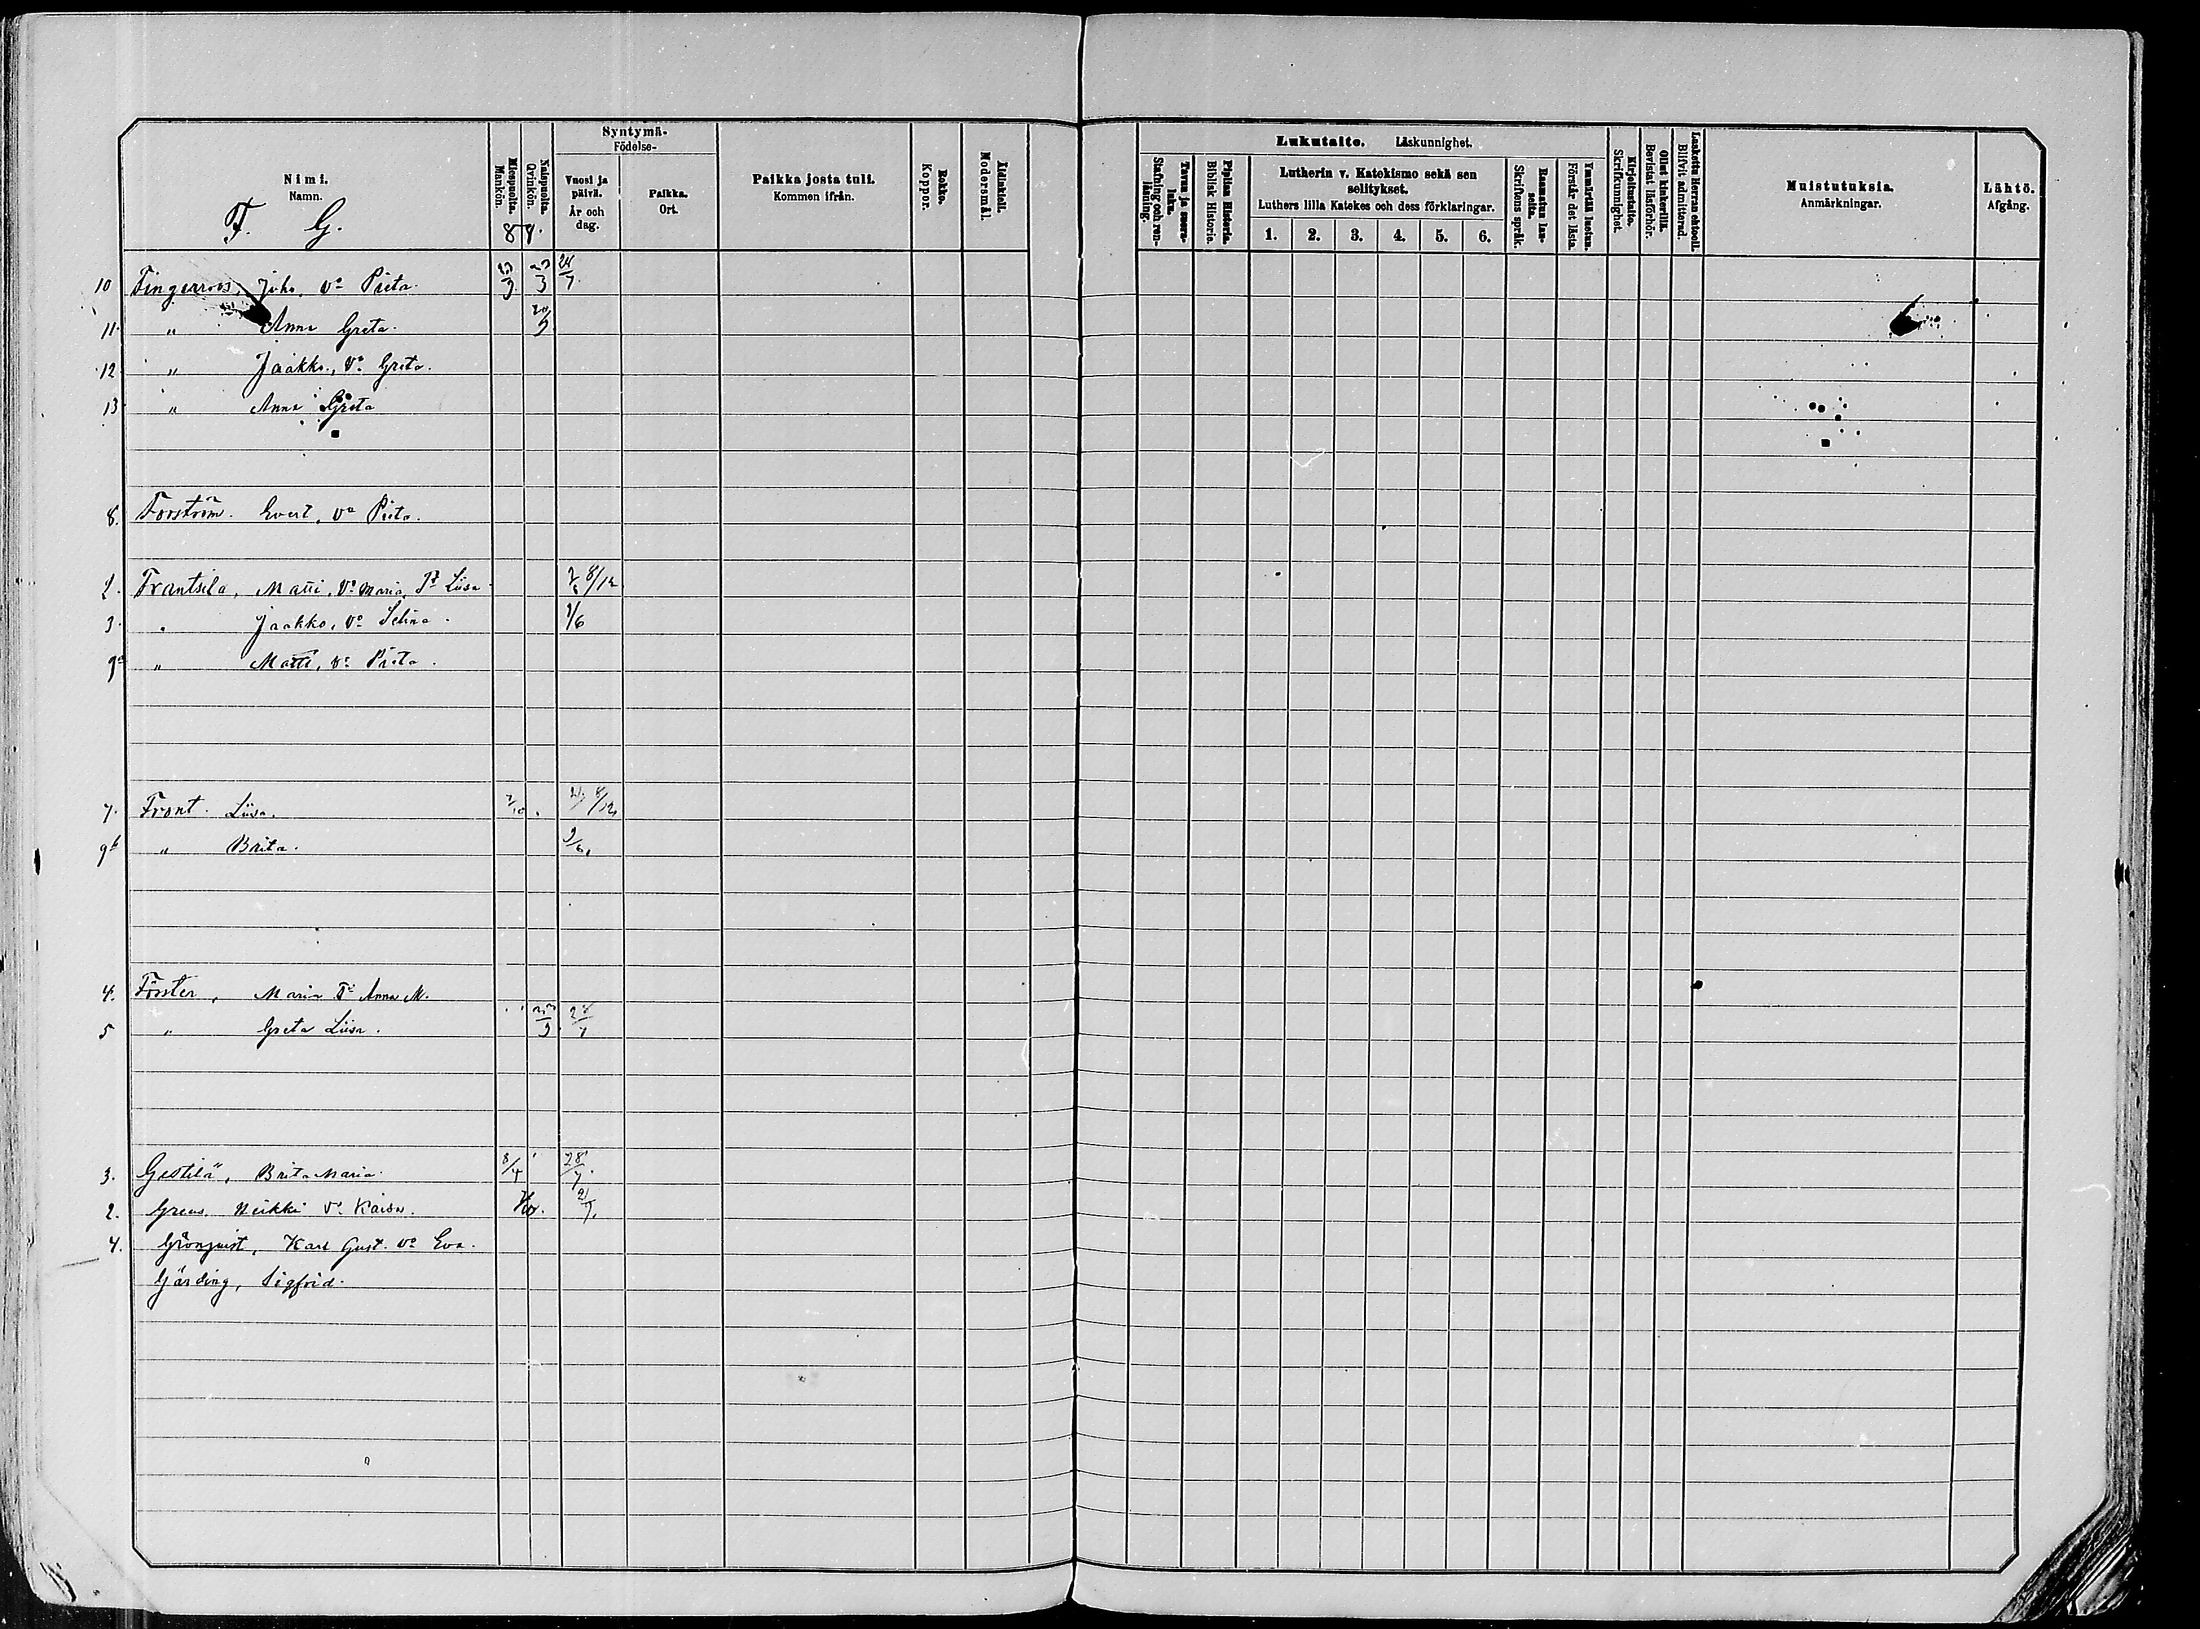 Nimi.
Namn.
F. G.
Miespuolta.
Mankön.
Naispuolta.
Qvinkön.
87.
Syntymä-
Födelse-
Vuosi ja
päivä.
År och
dag.
Paikka.
Ort.
Paikka josta tuli.
Kommen ifrån.
Rokko.
Koppor.
Äidinkieli.
Modersmål.
Lukutaito. Läskunnighet.
Tavuu ja suora-
luku.
Stafning och ren-
läsning.
Piplian Historia.
Biblisk Historie.
Lutherin v. Katekismo sekä sen
selitykset.
Luthers lilla Katekes och dess förklaringar.
1. 2. 3. 4. 5. 6.
Raamatun lau-
seita.
Skriftens språk.
Ymmärtää luetun.
Förstår det lästa.
Kirjoitustaito.
Skrifkunnighet.
Ollut kinkerillä.
Bevistat läsförhör.
Laskettu Herran ehtool.
Blifvit admitterad.
Muistutuksia.
Anmärkningar.
Lähtö.
Afgång.
10 Fingerroos, Juho, Vo Prita. 24/7.
11. " Anna Greta.
12 " Jaakko, Vo Greta.
13 " Anna Greta
8. Forström. Evert, Vo Prita.
2. Frantsila, Matti, Vo Maria, Liisa 8/12
3. " Jaakko, Vo Selina. 1/6
9a " Matti, Vo Prita.
7. Front. Liisa. 7/10 8/12
9b " Brita. 2/6.
4. Förster, Maria Anna M.
5 " Greta Liisa. 24/7
3. Gestilä, Brita Maria. 8/4 28/7.
2. Greus. Heikki Vo Kaisa. 2/9.
4. Grönqvist, Karl Gust. Vo Eva.
Gärding, Sigfrid.